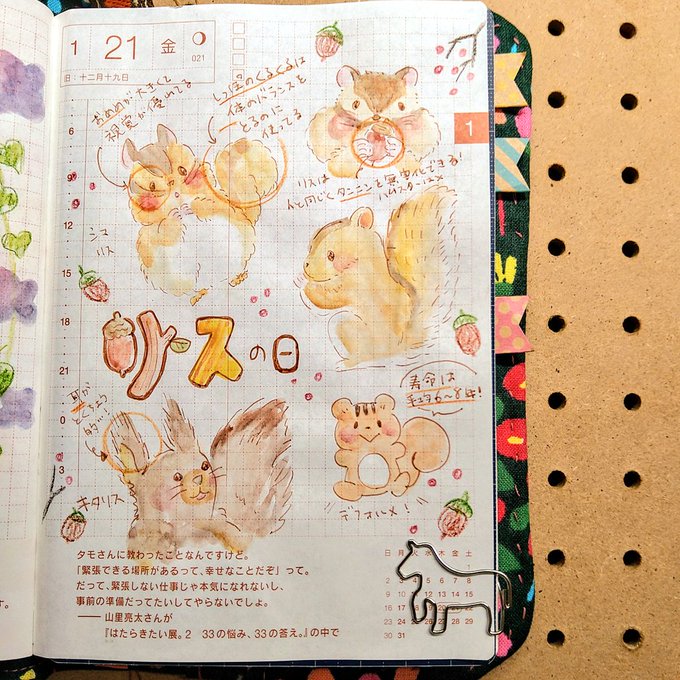 1 21 金
021
日：十二月十九日
おめめが大きくて
視覚が優れてる
しっぽのくるくるは
体のバランスを
とるのに
使ってる
1
リスは
人と同じくタンニンを無害化できる!
ハムスターは×
シマ
リス
リスの日
寿命は
6〜8年!
耳が
とくちょう
的!
キタリス
デフォルメ!
6
9
12
15
18
21
0
3
タモさんに教わったことなんですけど。
「緊張できる場所があるって、幸せなことだぞ」って。
だって、緊張しない仕事じゃ本気になれないし、
事前の準備だってたいしてやらないでしょ。
——山里亮太さんが
『はたらきたい展。2　33の悩み、33の答え。』の中で
日 月 火 水 木 金 土
1
2 8
9 15
16 17 22
23 24 29
30 31